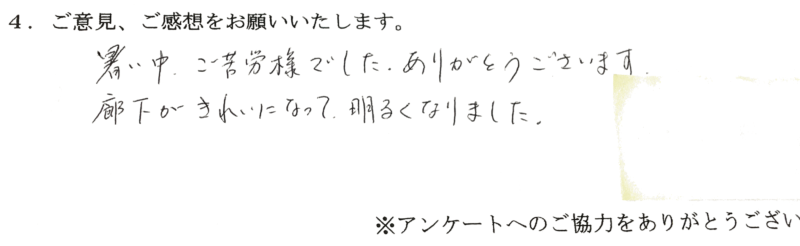 4．ご意見、ご感想をお願いいたします。
暑い中、ご苦労様でした。ありがとうございます。
廊下がきれいになって、明るくなりました。
※アンケートへのご協力をありがとうござい